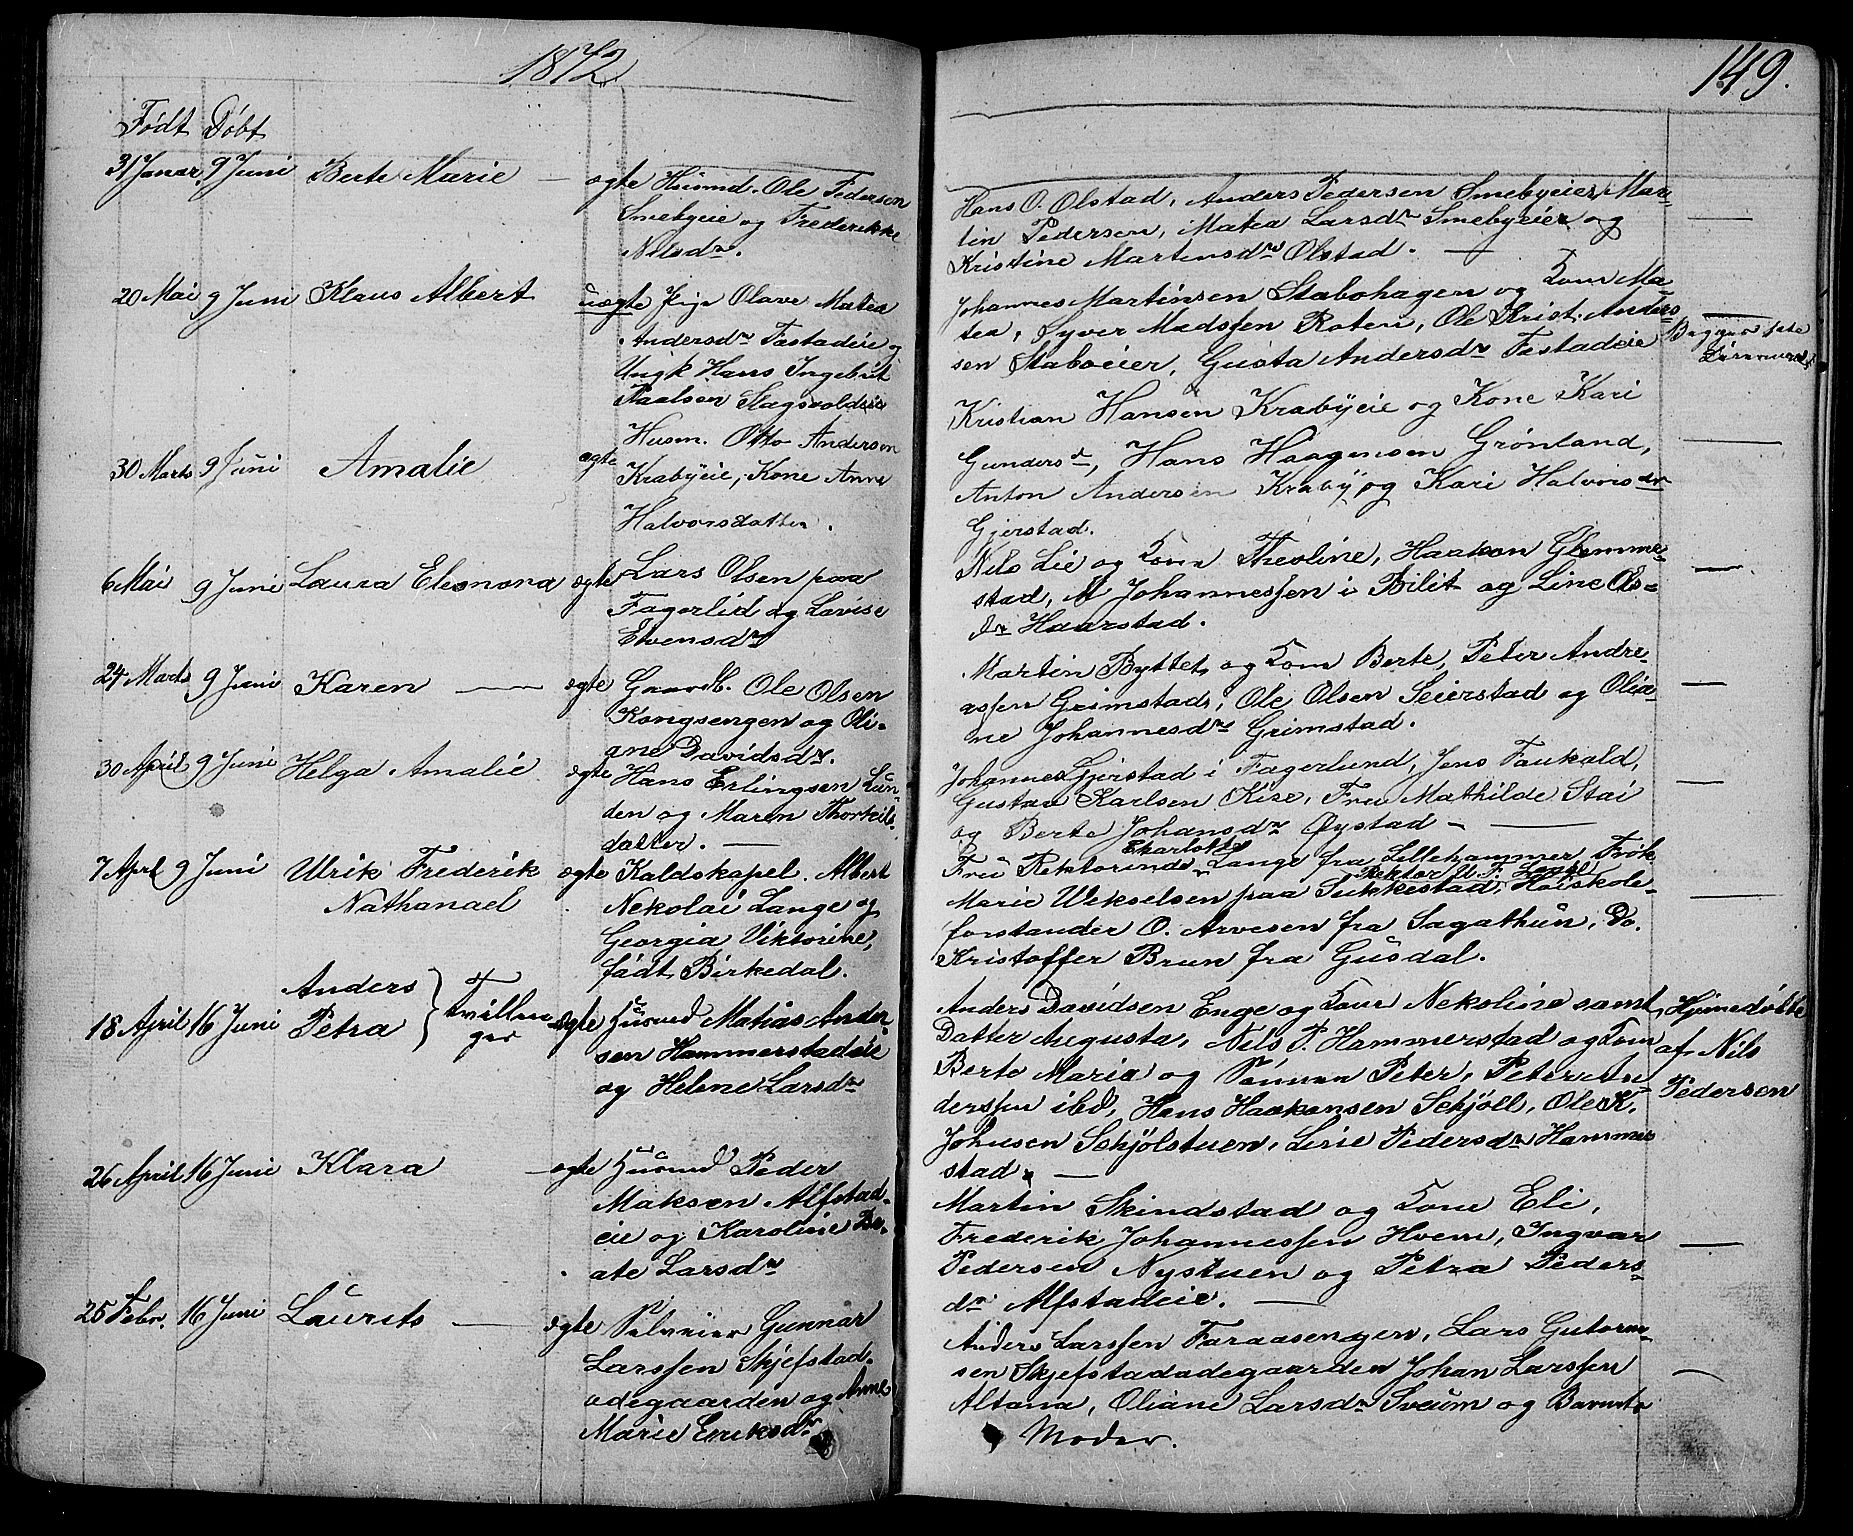 1872
149.
Født Døbt
31 Januar. 9 Juni Berte Marie — ægte Husmd. Ole Pedersen
Smebyeie og Frederikke
Nilsdr.
Hans O. Olstad, Anders Pedersen Smebyeier, Mar-
tin Pedersen, Matea Larsdr Smebyeier og
Kristine Martinsdr Olstad. —
20 Mai 9 Juni Klaus Albert uægte Pige Olave Matea
Andersdr Tostadeie og
Ungk Hans Ingebrit
Paalsen Slagsvoldseie
Johannes Martinsen Stabohagen og Kone Ma-
tea, Syver Madssen Roten, Ole Krist. Anders-
sen Staboeier, Gusta Andersdr Tostadeie
Begges 1ste
30 Marts 9 Juni Amalie ægte Husm. Otto Andersen
Krabyeie, Kone Anne
Halvorsdatter.
Kristian Hansen Krabyeie og Kone Kari
Gundersdr, Hans Haagensen Grønland,
Anton Andersen Kraby og Kari Halvorsdr
Gjerstad.
6 Mai 9 Juni Laura Eleonora ægte Lars Olsen paa
Fagerlid og Lovise
Evensdr
Nils Lie og Kone Theoline, Haakon Glemme-
stad, M Johannessen i Bilit og Line Ols-
dr Haarstad.
24 Marts 9 Juni Karen — ægte Gaardb. Ole Olsen
Kongsengen og Oli-
ane Davidsdr.
Martin Byttet og Kone Berte, Peter Andre-
assen Grimstad, Ole Olsen Seierstad og Olia-
ne Johannesdr Grimstad.
30 April 9 Juni Helga Amalie ægte Hans Erlingsen Lun-
den og Maren Thorkils-
datter. —
Johannes Gjerstad i Fagerlund, Jens Faukald,
Gustav Karlsen Kise, Fru Mathilde Stai
og Berte Johansdr Øystad —
7 April 9 Juni Ulrik Frederik ægte Kaldskapel. Albert
Nathanael Nekolai Lange og
Georgia Viktorine,
født Birkedal.
Charlotte
Fru Rektorinde Lange fra Lillehammer, Frøk.
Rektor U. F. Lange
Marie Wekselsen paa Sukkestad, Høiskole-
forstander O. Arvesen fra Sagathun, Do.
Kristoffer Brun fra Gusdal.
Anders
18 April 16 Juni Petra } Tvillin-
ger ægte Husmd Matias Ander-
sen Hammerstadeie
og Helene Larsdr
Anders Davidsen Enge og Kone Nekoline samt
Datter Augusta, Nils P. Hammerstad og Kone
Berte Maria og Sønnen Peter, Peter An-
derssen ibd, Hans Haakensen Schjøll, Ole K.
Johnsen Schjølstuen, Lisie Pedersdr Hammer
stad. —
Hjemedøbte
af Nils
Pedersen
26 April 16 Juni Klara — ægte Husmd Peder
Maksen Alfstad-
eie og Karoline Be-
ate Larsdr
Martin Skindstad og Kone Eli,
Frederik Johannessen Hvem, Ingvar
Pedersen Nystuen og Petra Peders-
dr Alfstadeie. —
25 Febr. 16 Juni Laurits — ægte Selveier Gunnar
Larssen Skjefstad-
ødegaarden og Anne
Marie Eriksdr
Anders Larssen Faraasengen, Lars Gutorm-
sen Skjefstadødegaarden Johan Larssen
Altana, Oliane Larsdr Sveum og Barnets
Moder.